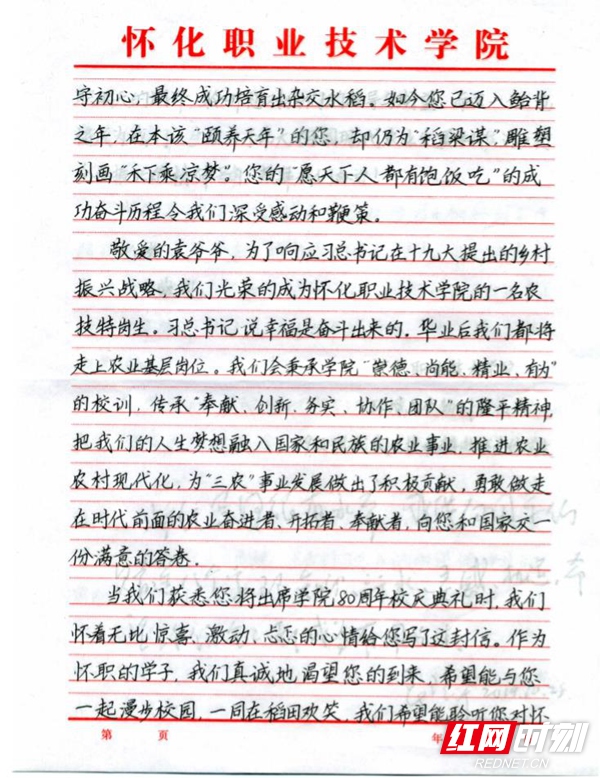 怀化职业技术学院
守初心,最终成功培育出杂交水稻。如今您已迈入鲐背
之年,在本该“颐养天年”的您,却仍为“稻粱谋”,雕塑
刻画“禾下乘凉梦”。您的“愿天下人都有饱饭吃”的成
功奋斗历程令我们深受感动和鞭策。
敬爱的袁爷爷,为了响应习总书记在十九大提出的乡村
振兴战略,我们光荣的成为怀化职业技术学院的一名农
技特岗生。习总书记说幸福是奋斗出来的,毕业后我们都将
走上农业基层岗位。我们会秉承学院“崇德、尚能、精业、有为”
的校训,传承“奉献、创新、务实、协作、团队”的隆平精神,
把我们的人生梦想融入国家和民族的农业事业,推进农业
农村现代化,为“三农”事业发展做出了积极贡献,勇敢做走
在时代前面的农业奋进者、开拓者、奉献者,向您和国家交一
份满意的答卷.
当我们获悉您将出席学院80周年校庆典礼时,我们
怀着无比惊喜、激动、忐忑的心情给您写了这封信。作为
怀职的学子,我们真诚地渴望您的到来,希望能与您
一起漫步校园,一同在稻田欢笑,我们希望能聆听您对怀
第 页 年
红网时刻
REDNET.CN